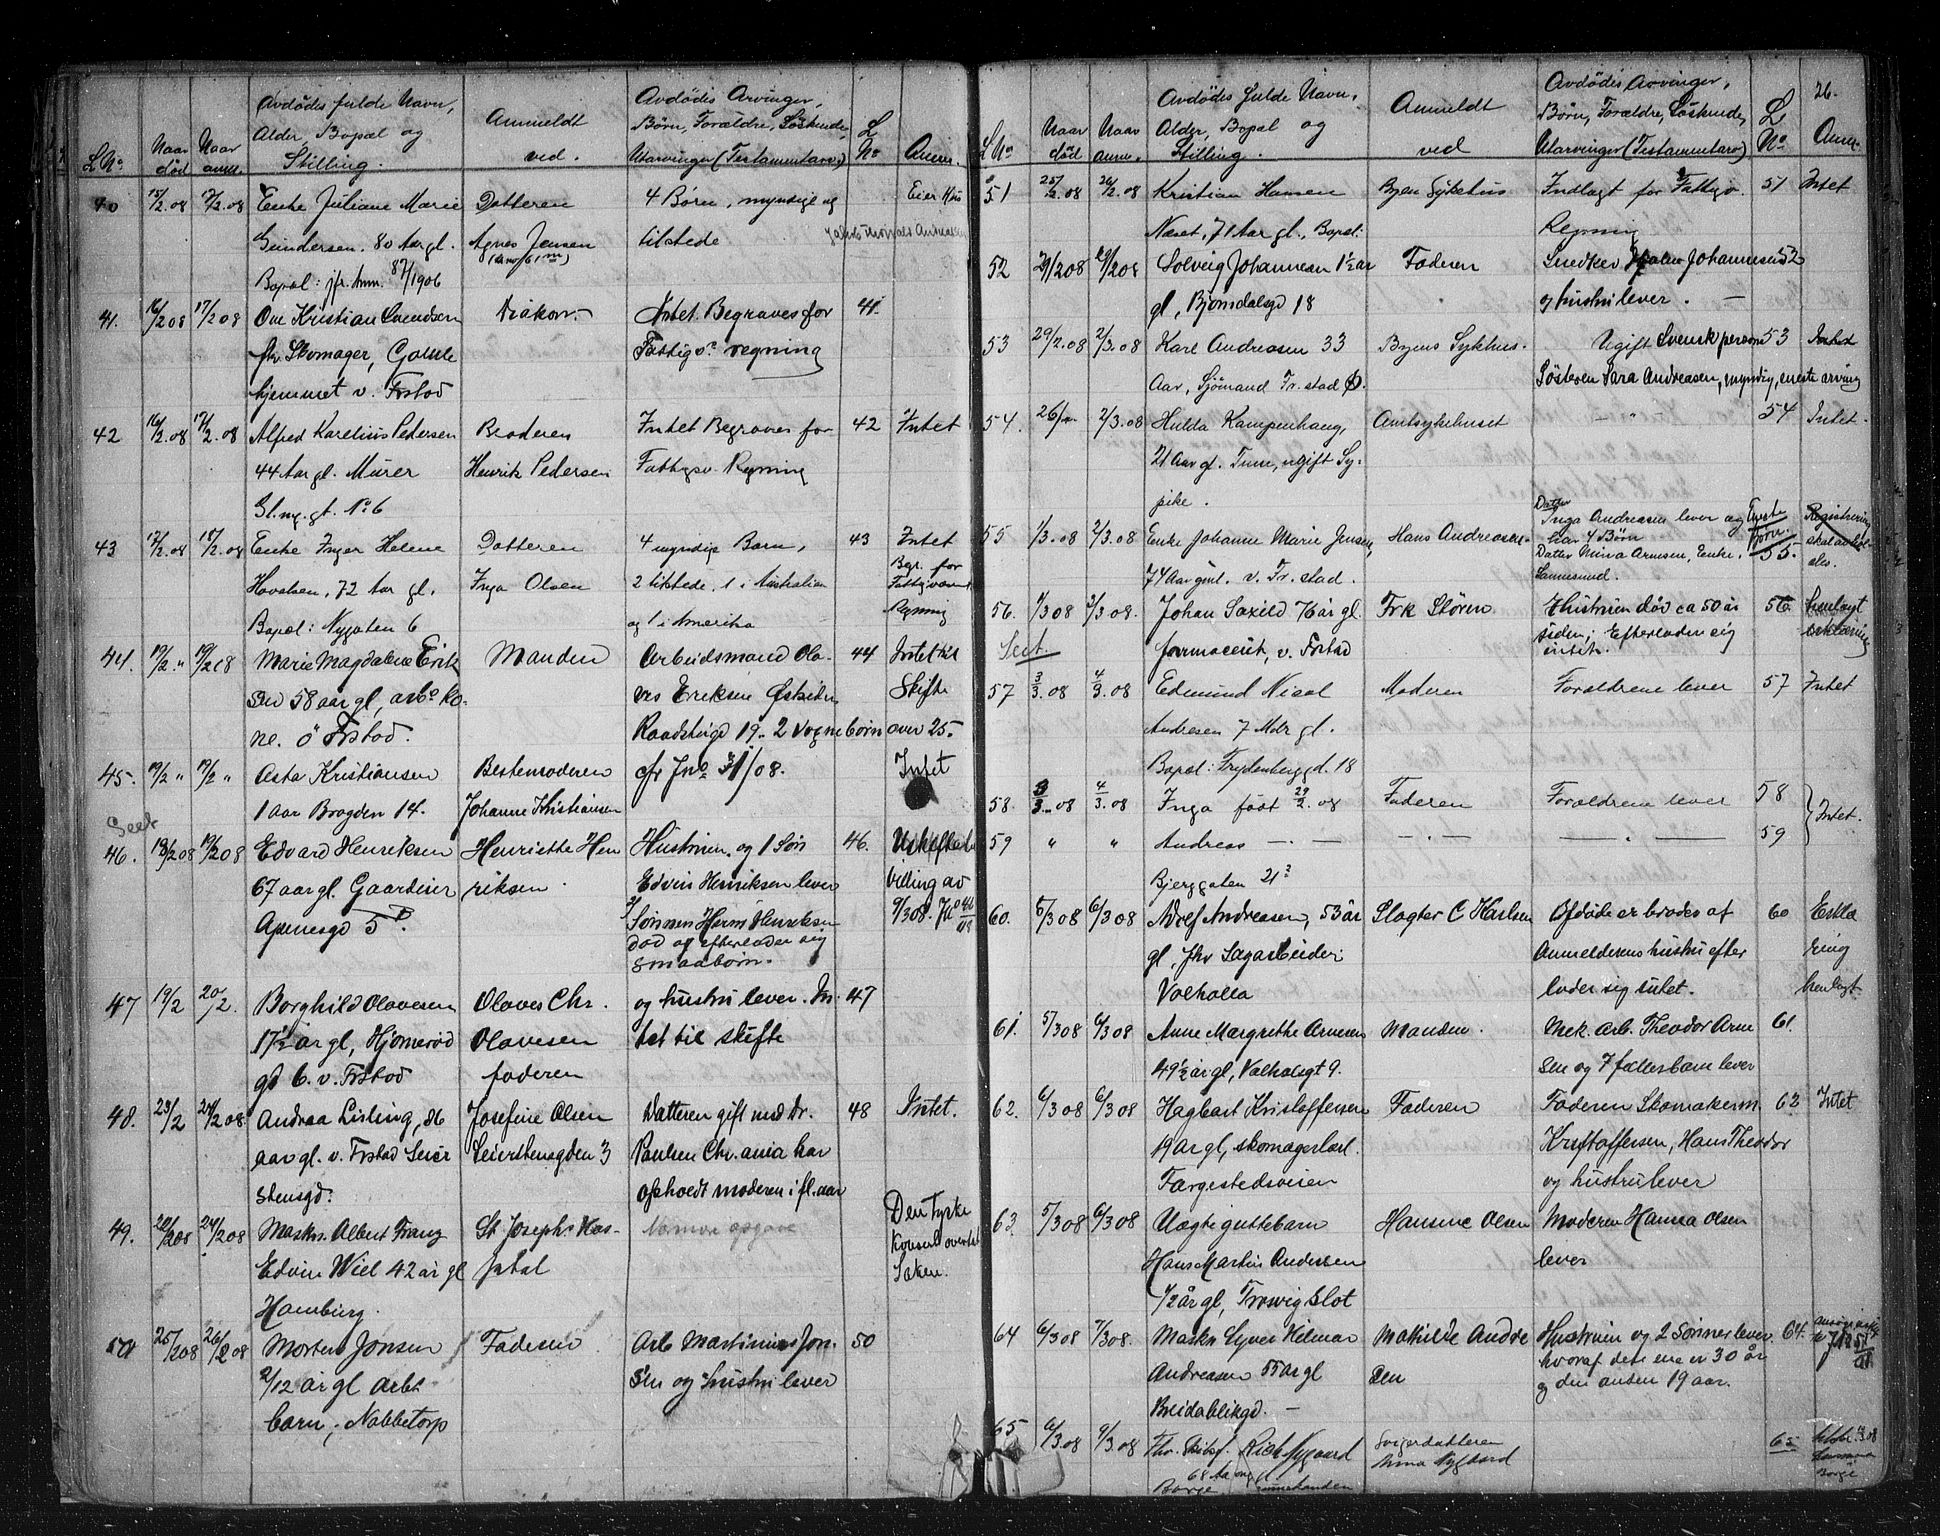 L.No. Naar död Naar anm. Avdödes fulde Navn, Alder, Bopæl og Stilling. Anmeldt ved. Avdödes Arvinger, Börn, Forældre, Söskende, Utarvinger (Testamentarv.) L No Anm.
40 15/2.08 17/2.08 Enke Juliane Marie Datteren 4 Börn, myndige og Eier Hus
Gundersen. 80 Aar gl. Agnes Jensen tilstede
Bopæl: jfr. Anm. 87/1906
41. 16/2 08 17/2 08 Ove Kristian Svendsen Diakon. Intet. Begraves for 41.
fhv. Skomager, Gamle Fattigv. regning
hjemmet v. Frstad
42 16/2.08 17/2.08 Alfred Karelius Pedersen Broderen Intet Begraves for 42 Intet
44 Aar gl. Murer Henrik Pedersen Fattigv. Regning
Gl. ny. gt. No 6
43 17/2.08 18/2.08 Enke Inger Helene Datteren 4 myndige Barn, 43 Intet
72 Aar gl. Inga Olsen 2 tilstede, 1 i Australien Begr. for Fattigvæsenets
Bopæl: Nygaten 6 og 1 i Amerika Regning
44. 19/2 " 19/2 08 Marie Magdalene Erik Manden Arbeidsmand Ola- 44 Intet til
sen 58 aar gl, arbs ko- ves Eriksen Skifte
ne. ö Frstad. Raadstugd 19. 2 vogne börn over 25.
45. 19/2 " 19/2 " Asta Kristiansen Bestemoderen cfr Jno 31/08. Intet
1 Aar Brogden 14. Johanne Kristiansen
Seet
46. 18/2 08 19/2 08 Edvard Henriksen Henriette Hen Hustruen og 1 Sön 46. Uskiftebe
67 aar gl. Gaardeier riksen. Edvin Henriksen lever villing av
Apenesgd 5 B. Sönnen Harm Henriksen 9/3 08.
död og efterlader sig
smaabörn.
47 19/2 20/2. Borghild Olavesen Olaves Chr. og hustru lever. In- 47
17 1/2 år gl, Hjörneröd Olavesen tet til skifte
gd 6. v. Frstad faderen
48. 23/2 24/2 08 Andrea Lisling, 86 Josefine Olsen Datteren gift med Dr. 48 Intet.
aar gl. v. Frstad Seier Seierstensgden 3 Paulsen Chr.ania har
stensgd. opholdt moderen i fl. aar
49. 22/2 08 24/2 08 Maskn. Albert Franz St Josephs Hos- Nærmere opgave Den tyske
Edvin Wiel 42 år gl pital konsul overtat
Hamburg. Saken.
50 25/2 08 26/2 08 Morten Jonsen Faderen Arb. Martinius Jon- 50
2/12 år gl arbs sen og hustru lever
barn, Nabbetorp
26.
L No Naar död Naar anm. Avdödes fulde Navn, Alder, Bopæl og Stilling. Anmeldt ved Avdödes Arvinger, Börn, Forældre, Söskende, Utarvinger (Testamentarv) L No Anm.
51 25/2.08 26/2.08 Kristian Hansen Byens Sykehus Indlagt for Fattigv. 51 Intet
Næset, 71 Aar gl., Bopæl: Regning
52 29/2 08 29/2 08 Solveig Johannesen 1 1/2 ar Faderen Snedker Johannesen 52
gl, Bjørndalsgd 18 og hustru lever. —
53 29/2.08 2/3.08 Karl Andreasen 33 Byens Sykehus. Ugift Svensk person 53 Intet
Aar, Sjömand Fr.stad Ø. Sösteren Sara Andreasen, myndig, eneste arving
54. 26/2 2/3.08 Hulda Kampenhaug, Amtsykehuset — " — 54 Intet.
21 Aar gl. Tune, ugift Sy-
pike.
55 1/3.08 2/3.08 Enke Johanne Marie Jensen, Hans Andreasen Datter Inga Andreasen lever og har 4 Börn Eneste Börn Registrering
74 Aar gml. v. Fr.stad. Datter Mina Arnesen, Enke, Sannesund. 55. skal avhol-des.
56. 1/3 08 2/3 08. Johan Saxild 76 år gl Frk Stören Hustruen död ca 50 år 56. henlagt
Seet. farmaceut, v. Frstad siden; Efterlader sig intet. erklæring
57 3/3.08 4/3.08 Edmund Nicol Moderen Forældrene lever 57 Intet
Andresen 7 Mdr gl.
Bopæl: Frydenberggd. 18
58. 3/3.08 4/3.08 Inga födt 29/2.08 Faderen Forældrene lever 58 } Intet.
59 " " Andreas — . — — . — — " — 59
Bjerggaten 21
60. 5/3 08 6/3 08 Adolf Andreasen, 53 år Slagter C Karlsen Afdöde er broder af 60 Erklæ
gl, fhv Sagarbeider Anmelderens hustru efter ring
Valhalla lader sig intet. henlagt
61. 5/3 08 6/3 08 Anne Margrethe Arnesen Manden. Mek. Arb. Theodor Arne 61.
49 1/2 år gl, Valhalgt 9. sen og 7 fællesbarn lever
62. 6/3 08 6/3 08 Hagbart Kristoffersen Faderen Faderen Skomakerm. 62 Intet
19 ar gl, skomagerlærl. Kristoffersen, Hans Theodor
Færgestedsveien og hustru lever
63. 5/3 08 6/3 08 Uægte guttebarn Hansine Olsen Moderen Hansea Olsen
Hans Martin Andersen lever
1/2 år gl, Trosvig Slot
64 6/3 08 7/3 08. Maskn Syver Hilmar Mathilde Andre Hustruen og 2 Sönner lever 64.
Andreasen 55 ar gl sen hvoraf den ene er 30 år
Breidablikgd. — og den anden 19 aar.
65 6/3.08 9/3 08 Nygaard Svigerdatteren 65
68 Aar Mina Nygaard
Borge